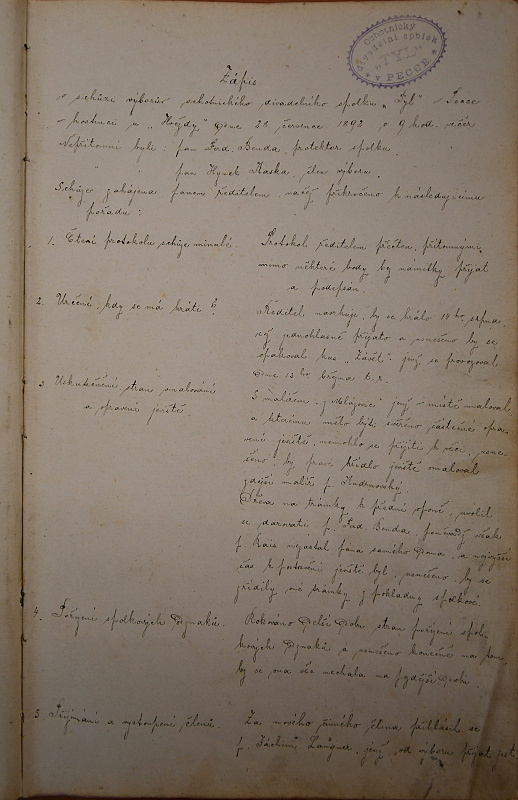 Ochotnický
divadelní spolek
"TYL"
PECCE
Zápis
o schůzi výborův ochotnického divadelního spolku „Tyl" v Pecce
v hostinci u „Hvězdy" dne 28 července 1892 o 9 hod. večer
Nepřítomni byli: pan Ferd. Benda, protektor spolku.
pan Hynek Kaska, člen výboru.
Schůze zahájena panem ředitelem, načež přikročeno k následujícímu
pořadu:
1. Čtení protokolu schůze minulé.
Protokol ředitelem přečten, přítomnými,
mimo některé body by námitky přijat
a podepsán.
2. Určení, kdy se má hráti?
Ředitel navrhuje, by se hrálo 14ho srpna,
což jednohlasně přijato a usneseno by se
opakoval kus „Závěť" jenž se provozoval
dne 13ho března t.r.
3 Uskutečnění stran malování
a opravení jeviště.
S malířem z jenž v místě maloval
a kterému mělo býti svěřeno částečné opra-
vení jeviště, nemohlo se přijíti k věci, usne-
šeno: by pravé křídlo jeviště maloval
zdejší malíř p.
Dřeva na trámky k přední oponě, uvolil
se darovati p. Ferd. Benda, poněvadž však
p. Kais nezastal pána samého doma, a nejvyšší
čas k postavení jeviště byl, usneseno, by se
zřídily oné trámky z pokladny spolkové.
4. Pořízení spolkových odznaků.
Rokováno delší dobu stran pořízení spol-
kových odznaků a usneseno konečně na tom,
by se ona věc nechala na pozdější dobu.
5. Přijímání a vystoupení členů.
Za nového činného člena přihlásil se
p. Langner, jenž od výboru přijat jest,